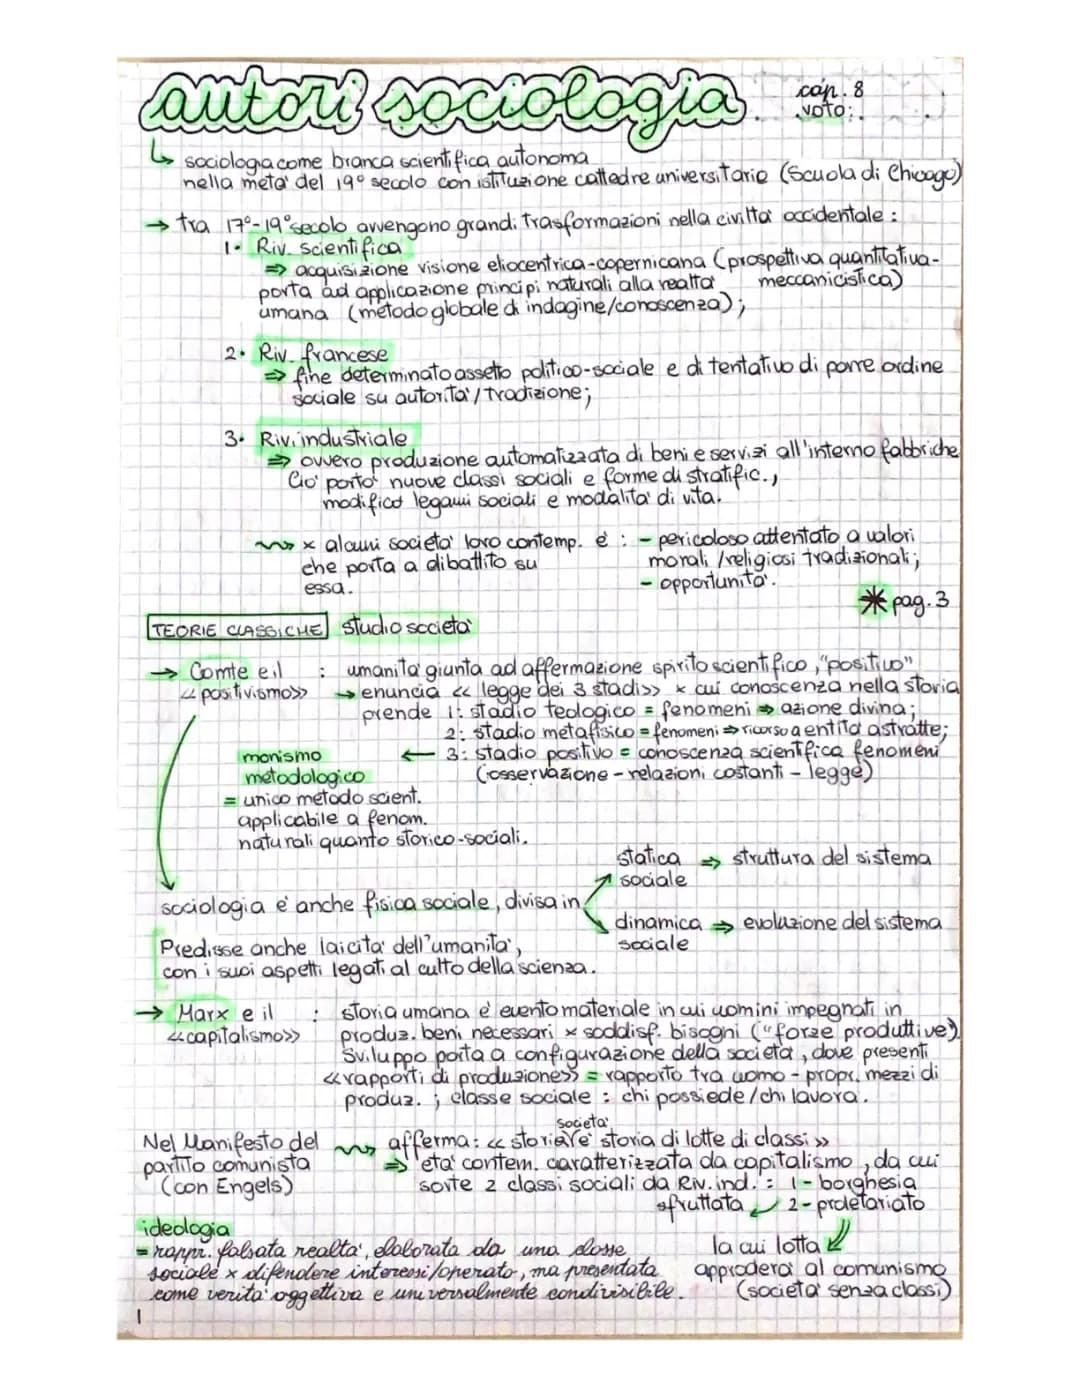 autori sociologia
cap. 8
voto:
↳ sociologia come branca scientifica autonoma
nella metà del 19° secolo con istituzione cattedre universitarie (Scuola di Chicago)
→ tra 17°-19° secolo avvengono grandi trasformazioni nella civiltà occidentale:
1. Riv. scientifica
⇒ acquisizione visione eliocentrica-copernicana (prospettiva quantitativa-
porta ad applicazione principi naturali alla realtà meccanicistica)
umana (metodo globale di indagine/conoscenza);
2. Riv. francese
⇒ fine determinato assetto politico-sociale e di tentativo di porre ordine
sociale su autorità/tradizione;
3. Riv. industriale
⇒ ovvero produzione automatizzata di beni e servizi all'interno fabbriche
Ciò portò nuove classi sociali e forme di stratific.,
modificò legami sociali e modalità di vita.
x alcuni società loro contemp. è : - pericoloso attentato a valori
che porta a dibattito su morali/religiosi tradizionali;
essa. - opportunità.
* pag. 3
TEORIE CLASSICHE studio società
→ Comte e il : umanità giunta ad affermazione spirito scientifico, "positivo"
<< positivismo>> → enuncia << legge dei 3 stadi>> x cui conoscenza nella storia
prende 1: stadio teologico = fenomeni ⇒ azione divina;
2: stadio metafisico = fenomeni ⇒ ricorso a entità astratte;
monismo ← 3: stadio positivo = conoscenza scientifica fenomeni
metodologico (osservazione - relazioni costanti - legge)
= unico metodo scient.
applicabile a fenom.
naturali quanto storico-sociali.
statica ⇒ struttura del sistema
sociale
sociologia è anche fisica sociale, divisa in
dinamica ⇒ evoluzione del sistema
sociale
Predisse anche laicità dell'umanità,
con i suoi aspetti legati al culto della scienza.
→ Marx e il : storia umana è evento materiale in cui uomini impegnati in
<<capitalismo>> produz. beni necessari x soddisf. bisogni ("forze produttive).
Sviluppo porta a configurazione della società, dove presenti
<<rapporti di produzione>> = rapporto tra uomo - propr. mezzi di
produz. ; classe sociale : chi possiede/chi lavora.
società
Nel Manifesto del afferma: << storia è storia di lotte di classi >>
partito comunista ⇒ età contem. caratterizzata da capitalismo, da cui
(con Engels) sorte 2 classi sociali da Riv. ind. : 1- borghesia
sfruttata 2- proletariato
ideologia
= rappr. falsata realtà, elaborata da una classe la cui lotta
sociale x difendere interessi/operato, ma presentata approderà al comunismo
come verità oggettiva e universalmente condivisibile. (società senza classi)
1